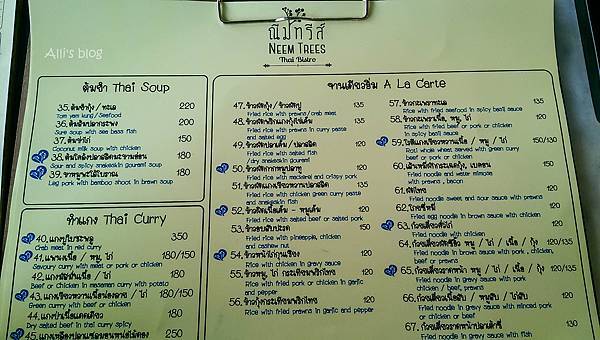 Alli's blog
ณีมทรีส์
NEEM TREES
Thai Bistro
ต้มซำ Thai Soup
35. ต้มยำกุ้ง / ทะเล 220
Tom yam kung/Seafood
36. ต้มส้มปลากระพง 200
Sure soup with sea bass fish
37. ต้มข่าไก่ 150
Coconut milk soup with chicken
38. ต้มโคล้งปลาสลิดมะขามอ่อน 180
Sour and spicy snakeskin gourami soup
39. ขาหมูพะโล้โบราณ 180
Leg pork with bamboo shoot in brown soup
ทำแกง Thai Curry
40. แกงปูใบชะพลู 350
Crab meat in red curry
41. แพนงเนื้อ / หมู, ไก่ 180/150
Savoury curry with meat or pork or chicken
42. แกงมัสมั่นเนื้อ / ไก่ 180
Beef or chicken in masaman curry with potato
43. แกงเขียวหวานเนื้อน่องลาย / ไก่ 180/150
Green curry with beef or chicken
44. แกงป่าเนื้อแดดเดียว 180
Dry salted beef in thai curry spicy
45. แกงเหลืองปลาแซลมอนหน่อไม้ดอง 250
จานเดียวอิ่ม A La Carte
47. ข้าวผัดกุ้ง / ข้าวผัดปู 135
Fried rice with prawns/crab meat
48. ข้าวผัดพริกแกงกุ้งไข่เค็ม 135
Fried rice with prawns in curry paste
and salted egg
49. ข้าวผัดปลาเค็ม / ปลาสลิด 120
Fried rice with salted fish
/dry snakeskin gourami
50. ข้าวผัดกากหมูปลาทู 120
Fried rice with mackerel and crispy pork
51. ข้าวผัดแกงเขียวหวานปลาสลิด 135
Fried rice with chicken green curry paste
and snakeskin fish
52. ข้าวผัดเนื้อเค็ม - หมูเค็ม 120
Fried rice with salted beef or salted pork
53. ข้าวอบสับปะรด 150
Fried rice with pineapple, chicken
and cashew nut
54. ข้าวหน้าไก่กุนเชียง 120
Rice with chicken in gravy sauce
55. ข้าวหมู, ไก่ กระเทียมพริกไทย 120
Rice with fried pork or chicken in garlic
and pepper
56. ข้าวกุ้งกระเทียมพริกไทย 120
Rice with fried prawns in garlic and pepper
57. ข้าวกะเพราทะเล 135
Rice with fried seafood in spicy basil sauce
58. ข้าวกะเพราเนื้อ, หมู, ไก่ 120
Rice with fried beef or pork or chicken
in spicy basil sauce
59. โรตีแกงเขียวหวานเนื้อ / หมู / ไก่ 150/130
Roti whole wheat served with green curry
beef or pork or chicken
60. เส้นหมี่ผัดกระเฉดกุ้ง, เบคอน 150
Fried noodle and water mimosa
with prawns, bacon
61. ผัดไทย 150
Fried noodle sweet and sour sauce with prawns
62. โกยซีหมี่ 150
Fried egg noodle in brown sauce with chicken
63. ก๋วยเตี๋ยวคั่วไก่ 120
Fried noodle with chicken
64. ก๋วยเตี๋ยวผัดซีอิ๊ว หมู / ไก่ / เนื้อ / กุ้ง 120/135
Fried noodle in brown sauce with pork, chicken,
beef or prawns
65. ก๋วยเตี๋ยวราดหน้า หมู / ไก่ / เนื้อ / กุ้ง 120/135
Fried noodle in gravy sauce with pork,
chicken or beef, prawns
66. ก๋วยเตี๋ยวเนื้อสับ / หมูสับ / ไก่สับ 120
Fried noodle in gravy sauce with minced pork
or chicken or beef
67. ก๋วยเตี๋ยวราดหน้าปลาเต้าซี่ 135
Fried noodle in gravy sauce with fish